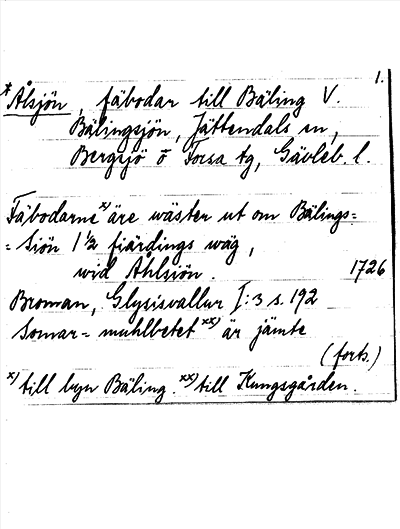 1.
*Ålsjön, fäbodar till Bäling V.
Bälingsjön, Jättendals sn,
Bergsjö o Forsa tg, Gävleb. l.
Fäbodarne x) äre wäster ut om Bälings=
=siön 1 1/2 fiärdings wäg,
wid Åhlsiön. 1726
Broman, Glysisvallur I:3 s. 192
Somar=muhlbetet xx) är jämte
(forts.)
x) till byn Bäling. xx) till Kungsgården.